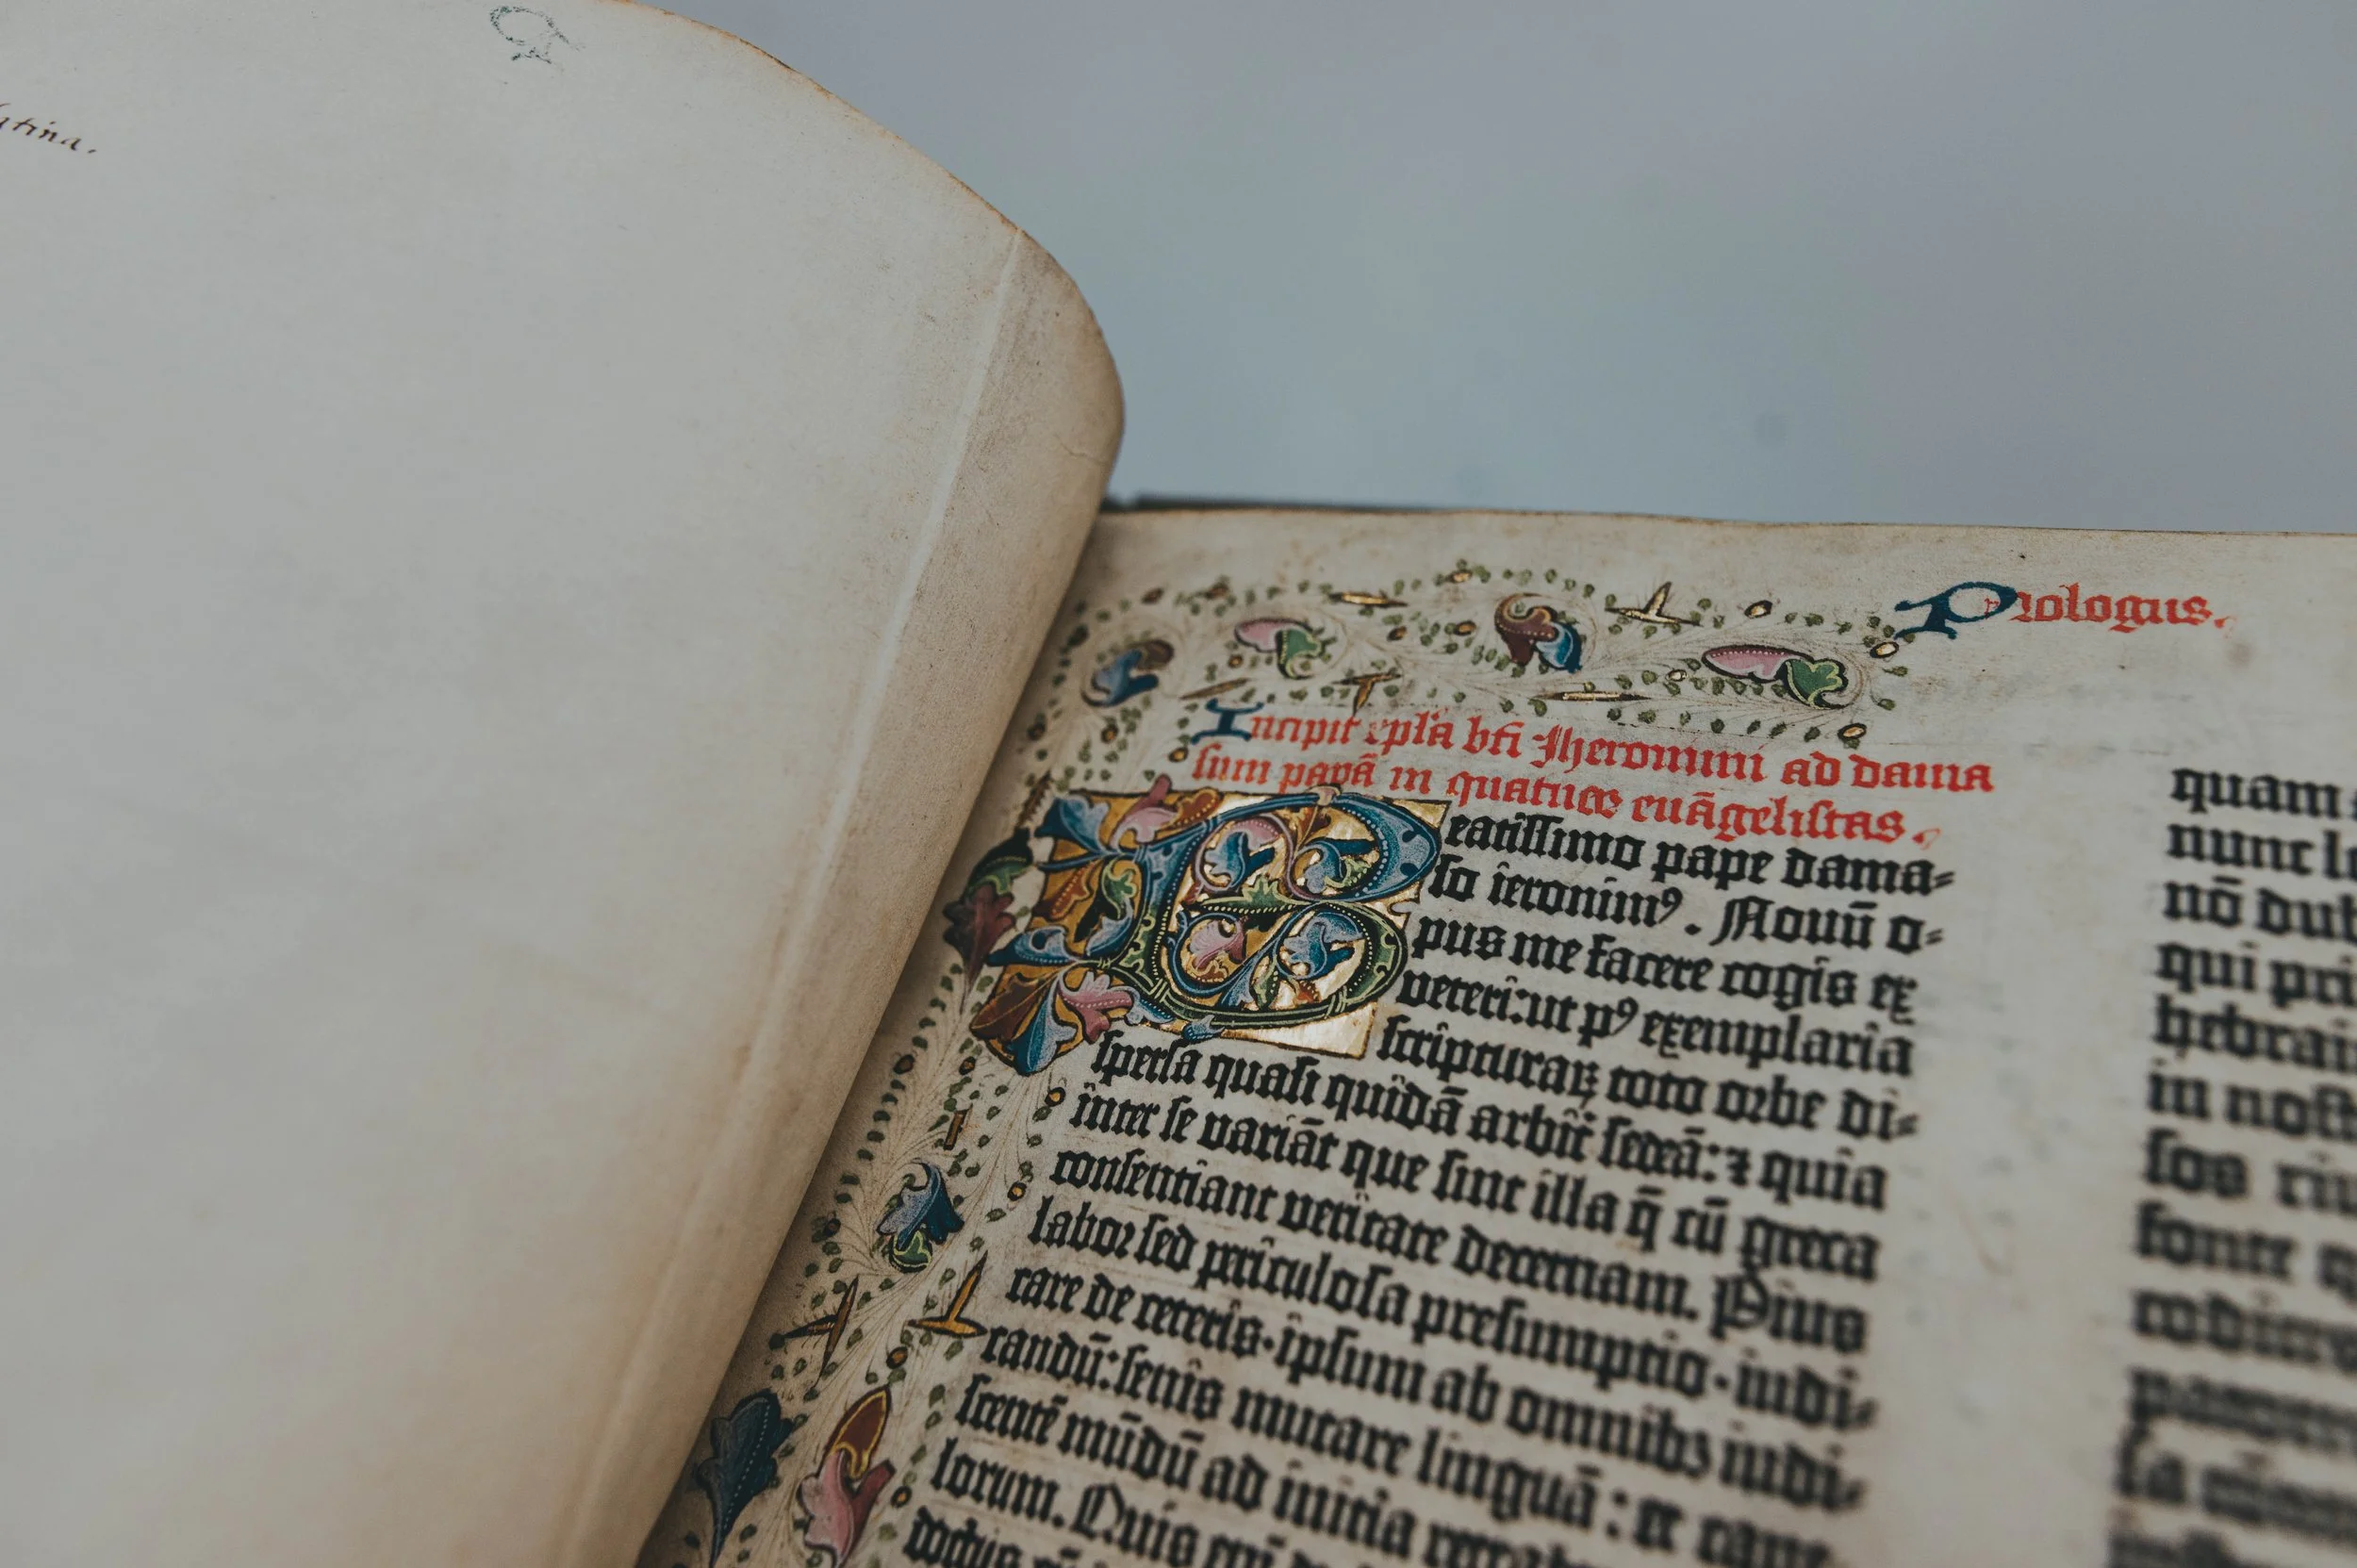 atina.
Prologus.
Incipit epl̄a bt̄i Jheronimi ad dama
sum papā in quatuor euāgelistas.
Beatissimo pape dama-
so ieronimꝰ. Nouū o-
pus me facere cogis ex
veteri: ut pꝰ exemplaria
scripturaꝝ toto orbe di-
spersa quasi quidā arbit̄ sedeā: ⁊ quia
inter se variāt que sint illa q̄ cū greca
consentiant veritate decernam. Pius
labor sed periculosa presumptio· iudi-
care de ceteris· ipsum ab omnibꝫ iudi-
candū: senis mutare linguā: et cane
scentē mūdū ad initia
lorum. Quis
doctus
quam
nunc
nō dub
qui pri
hebrai
in nost
sos riu
fonte
codices